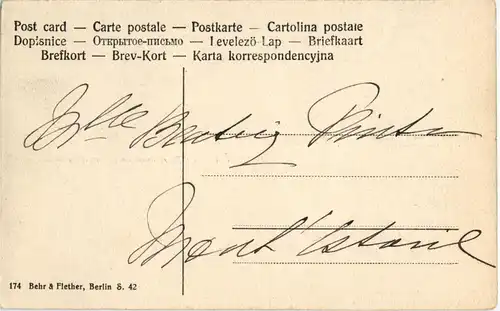 Post card — Carte postale — Postkarte — Cartolina postale
Dopisnice — Открытое-письмо — Levelező-Lap — Briefkaart
Brefkort — Brev-Kort — Karta korrespondencyjna
Mlle Beatriz Pinto
Mont'Estoril
174 Behr & Flether, Berlin S. 42